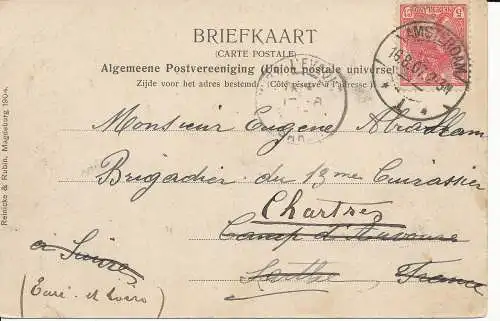 BRIEFKAART
(CARTE POSTALE)
Algemeene Postvereeniging (Union postale universelle)
Zijde voor het adres bestemd. (Côté réservé à l'adresse)
AMSTERDAM
16.8.07. 2-3N
Monsieur Eugène Abraham
Brigadier du 13me Cuirassier
Chartres
Camp d'Auvours
à suivre
Sarthe France
(Eure et Loire)
Reinicke & Rubin, Magdeburg 1904.